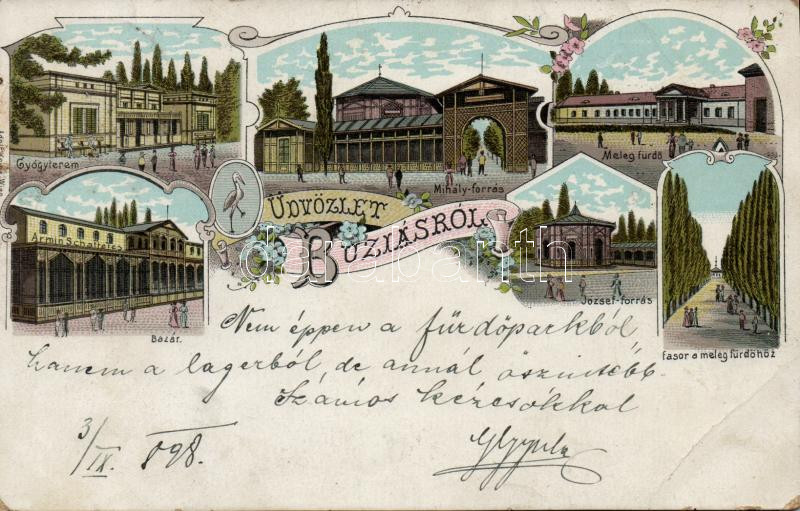 Gyógyterem
Mihály-forrás
Meleg fürdő
ÜDVÖZLET
BUZIÁSRÓL
Armin Schaffer
Bazár.
József-forrás
fasor a meleg fürdőhöz
darabanth
Nem éppen a fürdőparkból,
hanem a lagerból, de annál őszintébb
Számos kézcsókkal
3/IX. 898.